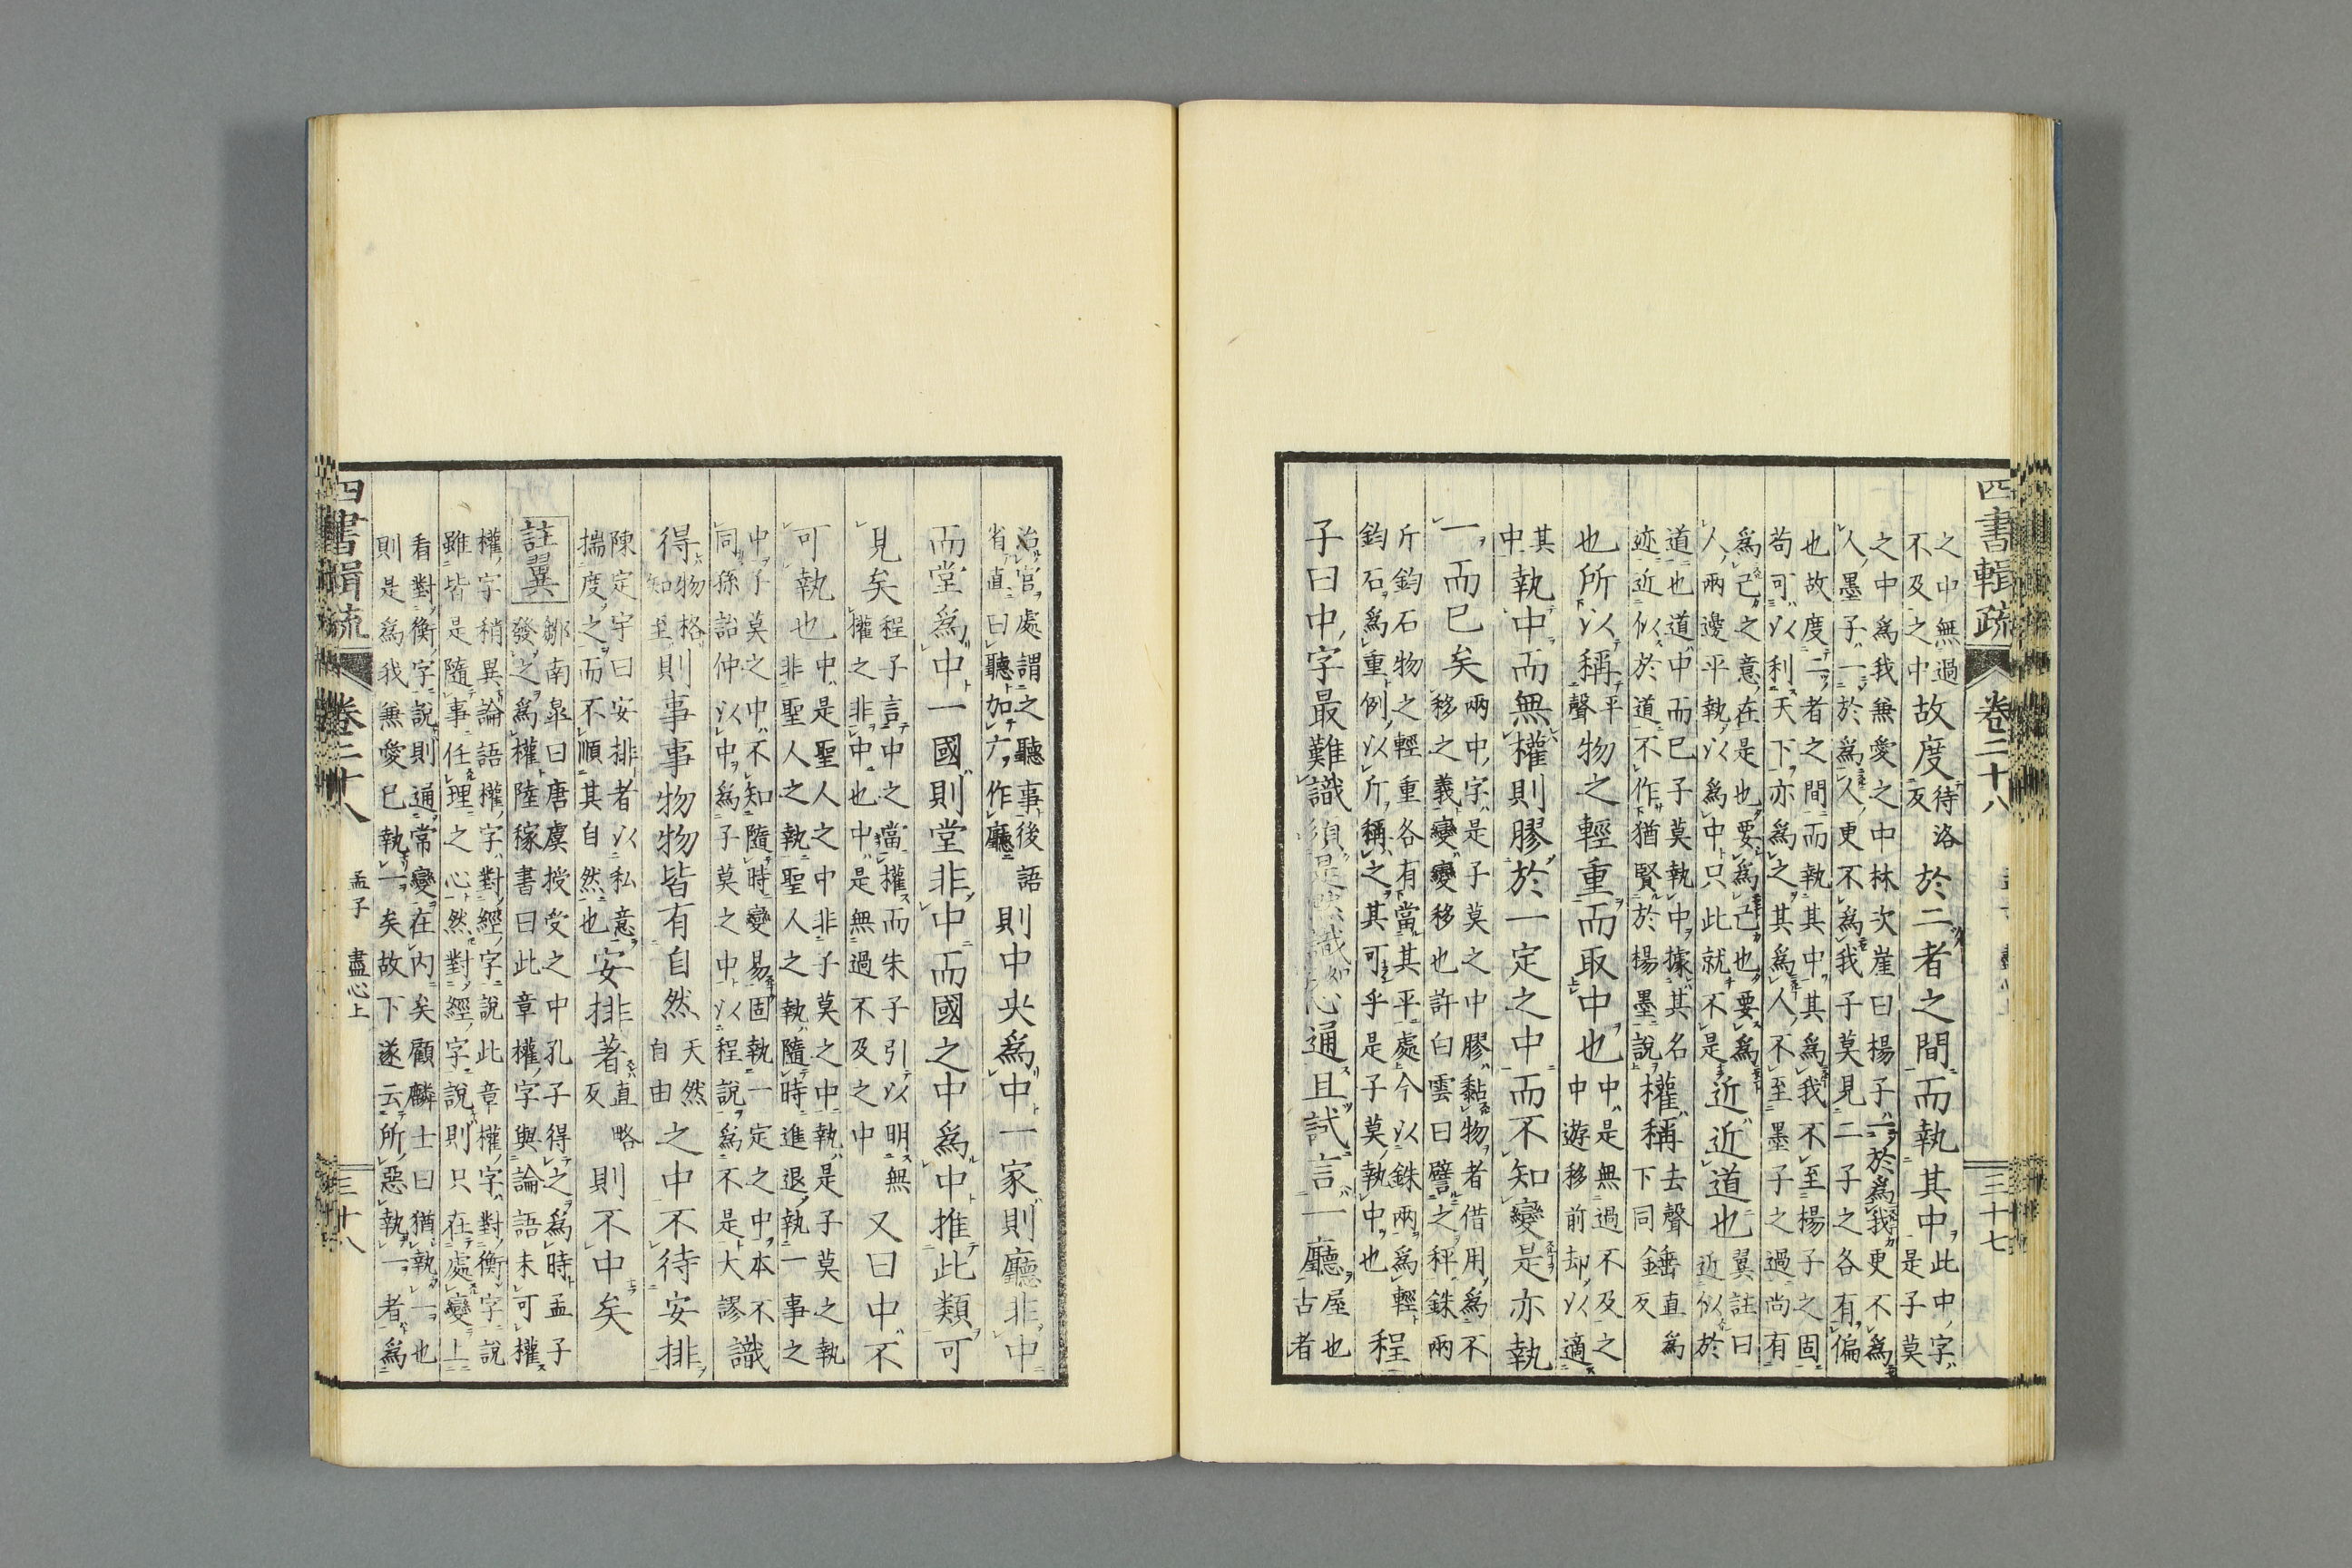 四書輯疏 卷二十八 三十七
之中無過
不及之中故度待洛反於二者之間而執其中此中字是子莫
之中為我無愛之中林次崖曰楊子一於為我更不為
人墨子一於為人更不為我子莫見二子之各有偏
也故度二者之間而執其中其為我不至楊子之固
苟可以利天下亦為之其為人不至墨子之過尚有
為己之意在是也要為己也要為
人兩邊平執以為中只此就不是近近道也翼註曰近似於
道也道中而已子莫執中據其名
迹近似於道不作猶賢於楊墨說權稱去聲錘直為反下同
也所以稱平聲物之輕重而取中也中是無過不及之中遊移前却以適
其中執中而無權則膠於一定之中而不知變是亦執
一而已矣兩中字是子莫之中膠黏物者借用為不移之義變變移也許白雲曰譬之秤銖兩
斤鈞石物之輕重各有當其平處今以銖兩為輕
鈞石為重例以斤稱之其可乎是子莫執中也程
子曰中字最難識須是默識心通且試言一廳屋也古者
治官處謂之聽事後語
省直曰聽加广作廳則中央為中一家則廳非中
而堂為中一國則堂非中而國之中為中推此類可
見矣程子言中之當權而朱子引以明無權之非中也中是無過不及之中又曰中不
可執也中是聖人之中非子莫之中執是子莫之執非聖人之執聖人之執隨時進退執一事之
中子莫之中不知隨時變易固執一定之中本不
同孫詒仲以中為子莫之中以程說為不是大謬識
得物格知至則事事物物皆有自然天然自由之中不待安排
陳定宇曰安排者以私意
揣度之而不順其自然也安排著直略反則不中矣
註翼鄒南皋曰唐虞授受之中孔子得之為時孟子發之為權陸稼書曰此章權字與論語未可權
權字稍異論語權字對經字說此章權字對衡字說
雖皆是隨事任理之心然對經字說則只在處變上
看對衡字說則通常變在內矣顧麟士曰猶執一也
則是為我無愛已執一矣故下遂云所惡執一者為
四書輯疏 卷二十八 孟子 盡心上 三十八